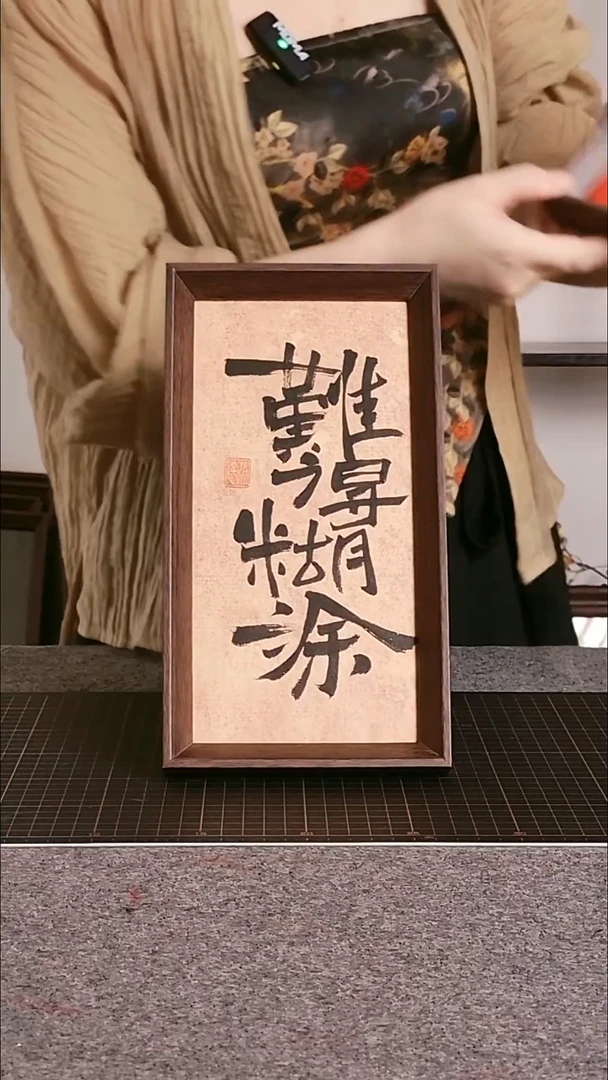 難
得
糊
涂